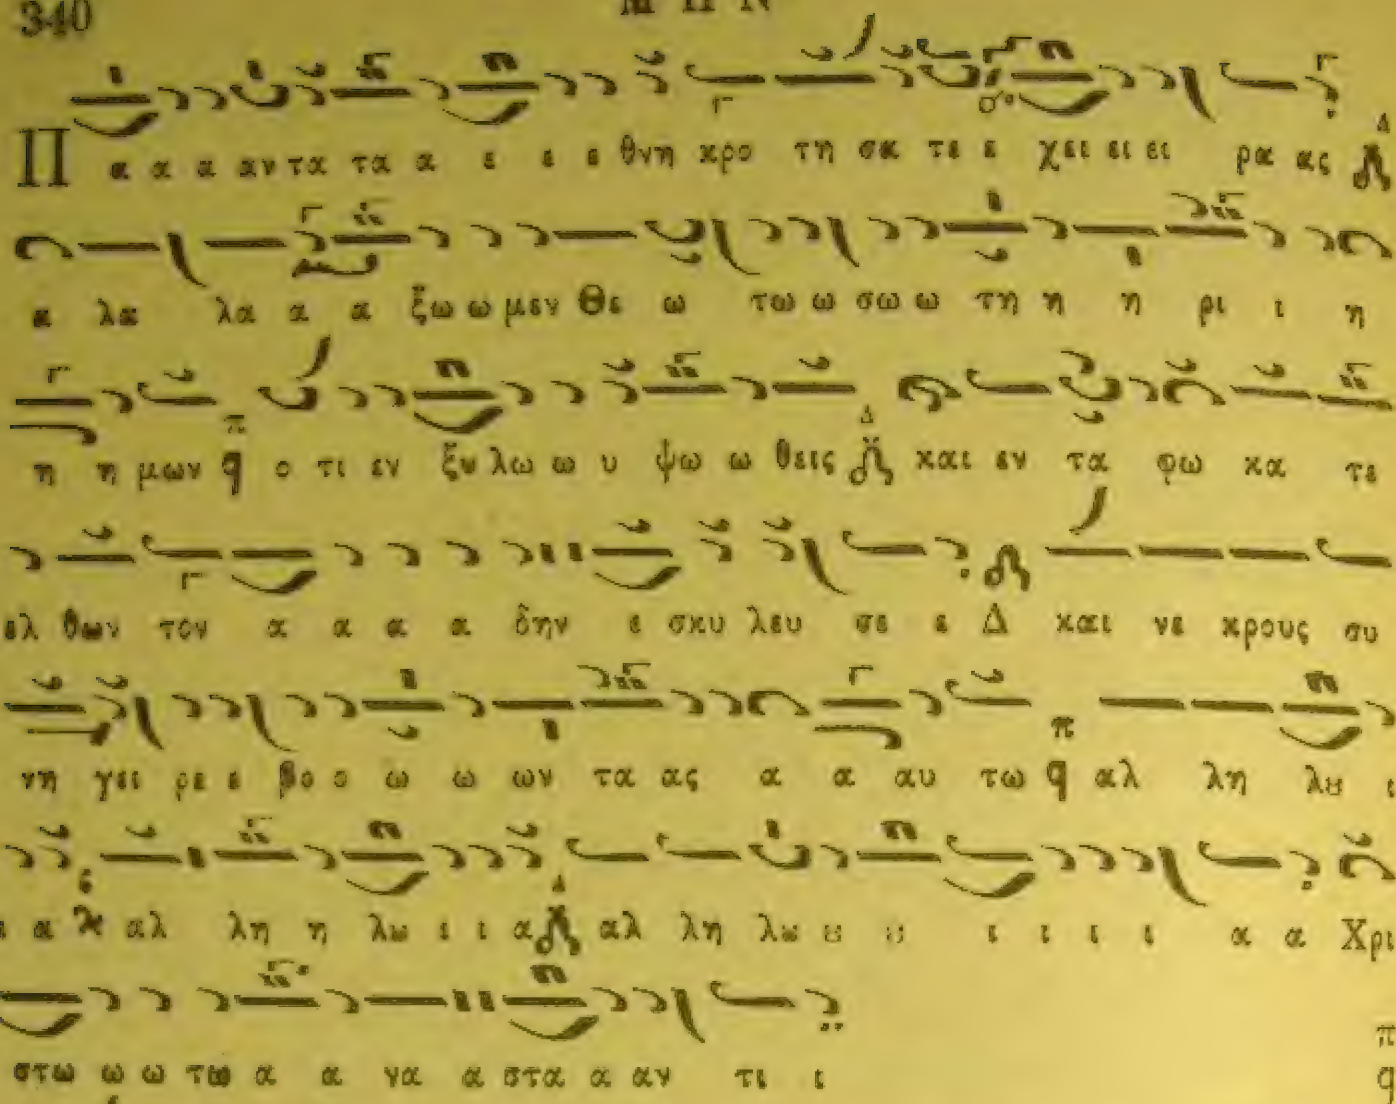 340
Π α α α αν τα τα α ε ε ε θνη κρο τη σα τε ε χει ει ει ρα ας Δ
α λα λα α α ξω ω μεν Θε ω τω ω σω ω τη η η ρι ι η
η η μων q ο τι εν ξυ λω ω υ ψω ω θεις Δ και εν τα φω κα τε
ελ θων τον α α α α δην ε σκυ λευ σε ε Δ και νε κρους συ
νη γει ρε ε βο ο ω ω ων τα ας α α αυ τω q αλ λη λȣ ι
ι α αλ λη η λȣ ι ι α Δ αλ λη λȣ ȣ ȣ ι ι ι ι α α Χρι
στω ω ω τω α α να α στα α αν τι ι